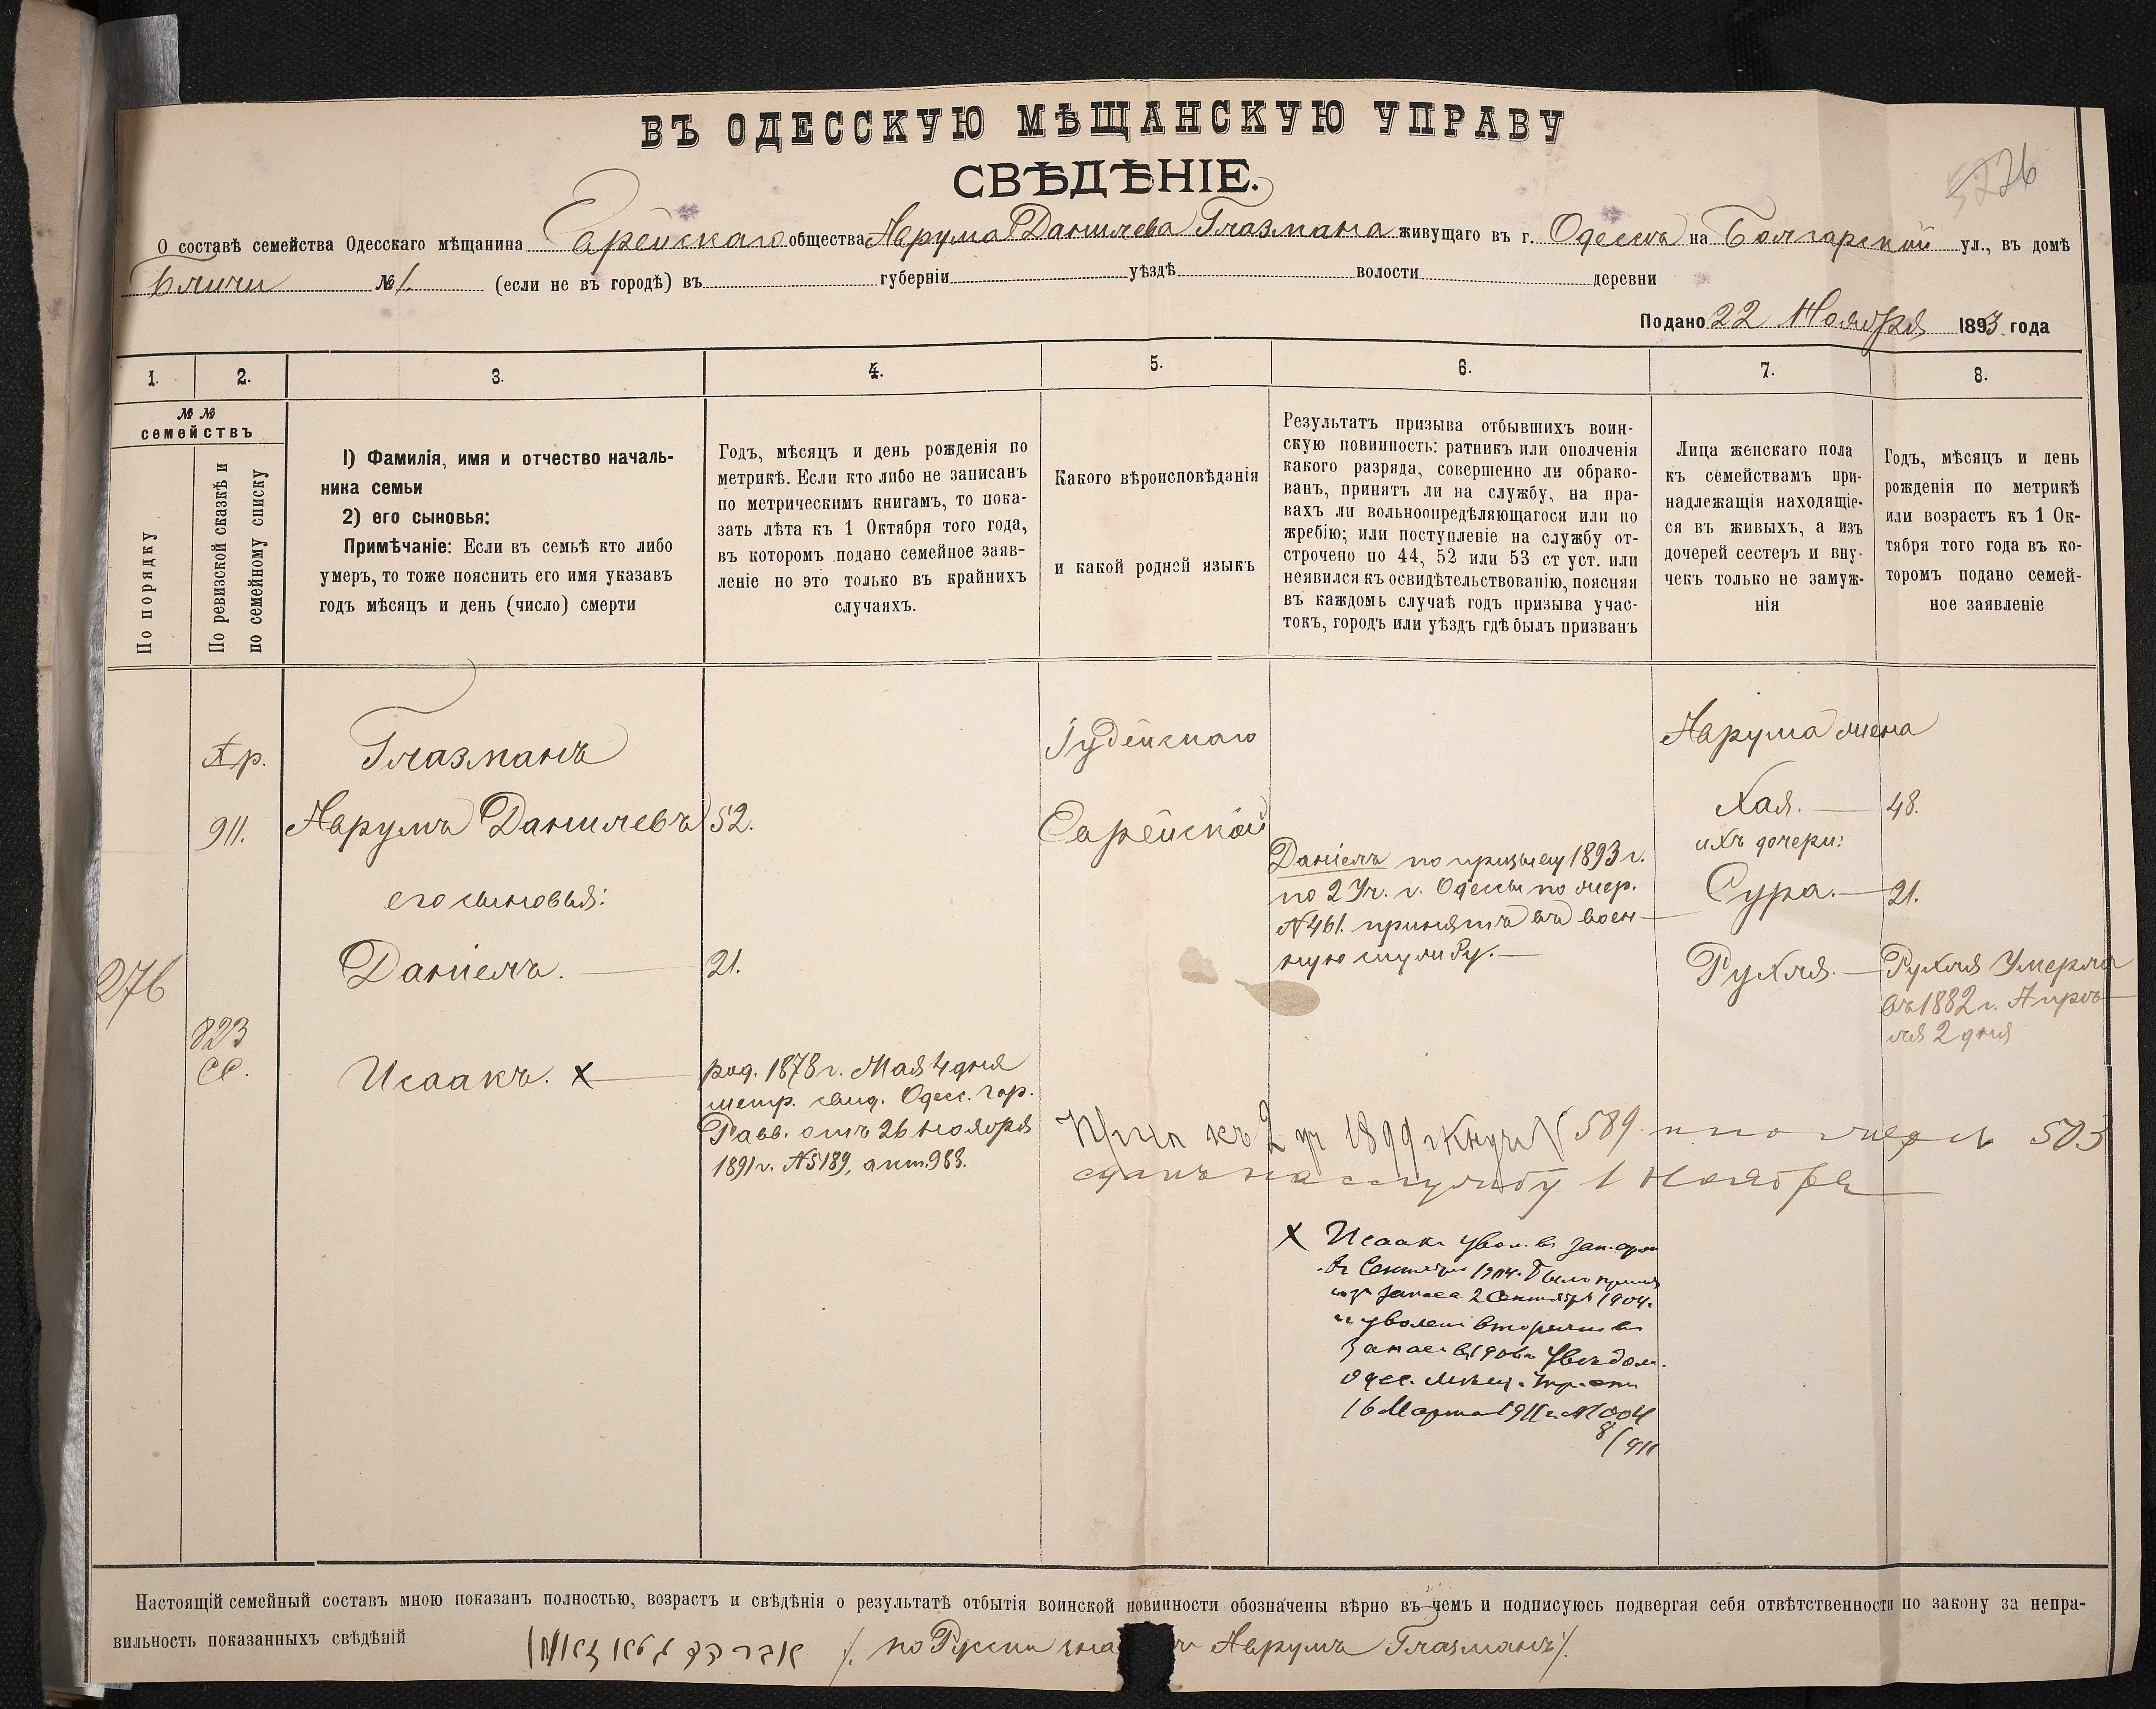 ВЪ ОДЕССКУЮ МѢЩАНСКУЮ УПРАВУ
СВѢДѢНІЕ.
О составѣ семейства Одесскаго мѣщанина Еврейскаго общества Аврума Данилева Глазмана живущаго въ г. Одессѣ на Болгарской ул., въ домѣ
№ 1. (если не въ городѣ) въ губерніи уѣздѣ волости деревни
Подано 22 Ноября 1893 года
1. 2. 3. 4. 5. 6. 7. 8.
№ №
семействъ
По порядку
По ревизской сказкѣ и
по семейному списку
1) Фамилія, имя и отчество началь-
ника семьи
2) его сыновья:
Примѣчаніе: Если въ семьѣ кто либо
умеръ, то тоже пояснить его имя указавъ
годъ мѣсяцъ и день (число) смерти
Годъ, мѣсяцъ и день рожденія по
метрикѣ. Если кто либо не записанъ
по метрическимъ книгамъ, то пока-
зать лѣта къ 1 Октября того года,
въ которомъ подано семейное заяв-
леніе но это только въ крайнихъ
случаяхъ.
Какого вѣроисповѣданія
и какой родной языкъ
Результатъ призыва отбывшихъ воин-
скую повинность: ратникъ или ополченія
какого разряда, совершенно ли обрако-
ванъ, принятъ ли на службу, на пра-
вахъ ли вольноопредѣляющагося или по
жребію; или поступленіе на службу от-
строчено по 44, 52 или 53 ст уст. или
неявился къ освидѣтельствованію, поясняя
въ каждомъ случаѣ годъ призыва учас-
токъ, городъ или уѣздъ гдѣ былъ призванъ
Лица женскаго пола
къ семействамъ при-
надлежащія находящіе-
ся въ живыхъ, а изъ
дочерей сестеръ и вну-
чекъ только не замуж-
нія
Годъ, мѣсяцъ и день
рожденія по метрикѣ
или возрастъ къ 1 Ок-
тября того года въ ко-
торомъ подано семей-
ное заявленіе
276
911.
823
Глазманъ
Аврумъ Данилевъ 52.
его сыновья:
Даніелъ. 21.
Исаакъ. х
род. 1878 г. Мая 4 дня
метр. свид. Одес. гор.
Равв. отъ 26 ноября
1891 г. №5189, акт. 988.
Іудейскаго
Еврейскій
Даніелъ по призыву 1893 г.
по 2 Уч. г. Одессы по жер.
№461. принятъ въ воен-
ную службу.
Аврума жена
Хая. 48.
ихъ дочери:
Сура. 21.
Рухля. Рухля Умерла
въ 1882 г. Апрѣ-
ля 2 дня
къ 2 уч 1899 № 589 503
службу 1 Ноября
х Исаак увол. в зап. арм
в Сентябре 1904.
из запаса 2 Сентября 1904.
и уволен вторично в
запас в 1906
Одес. Мещ. Упр. от
16 Марта 1911 г.
Настоящій семейный составъ мною показанъ полностью, возрастъ и свѣдѣнія о результатѣ отбытія воинской повинности обозначены вѣрно въ чемъ и подписуюсь подвергая себя отвѣтственности по закону за непра-
вильность показанныхъ свѣдѣній
по Русски Аврумъ Глазманъ